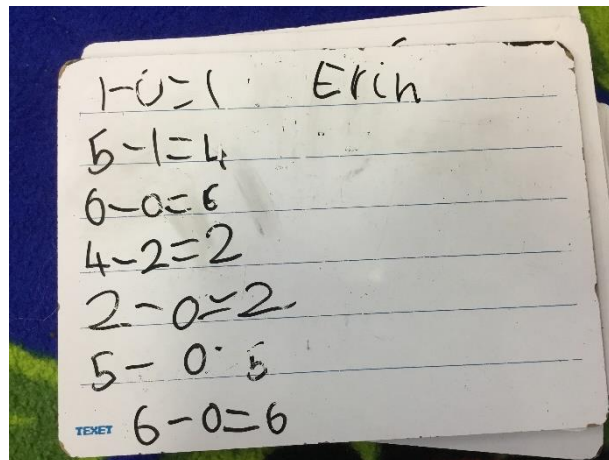 1-0=1 Erin
5-1=4
6-0=6
4-2=2
2-0=2
5- 0 5
TEXET 6-0=6